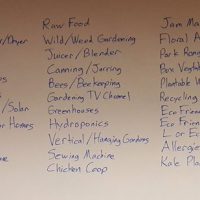 Raw Food
Wild/Weed Gardening
/Dryer
Juicer/Blender
Canning/Jarring
Bees/Beekeeping
Gardening TV Channel
/Solar
Greenhouses
Homes
Hydroponics
Vertical/Hanging Gardens
Sewing Machine
Chicken Coop
Jam Ma
Floral A
Park Rang
Box Vegetab
Plantable W
Recycling
Eco Frien
Eco Frien
L or Eco
Allergie
Kale Pla